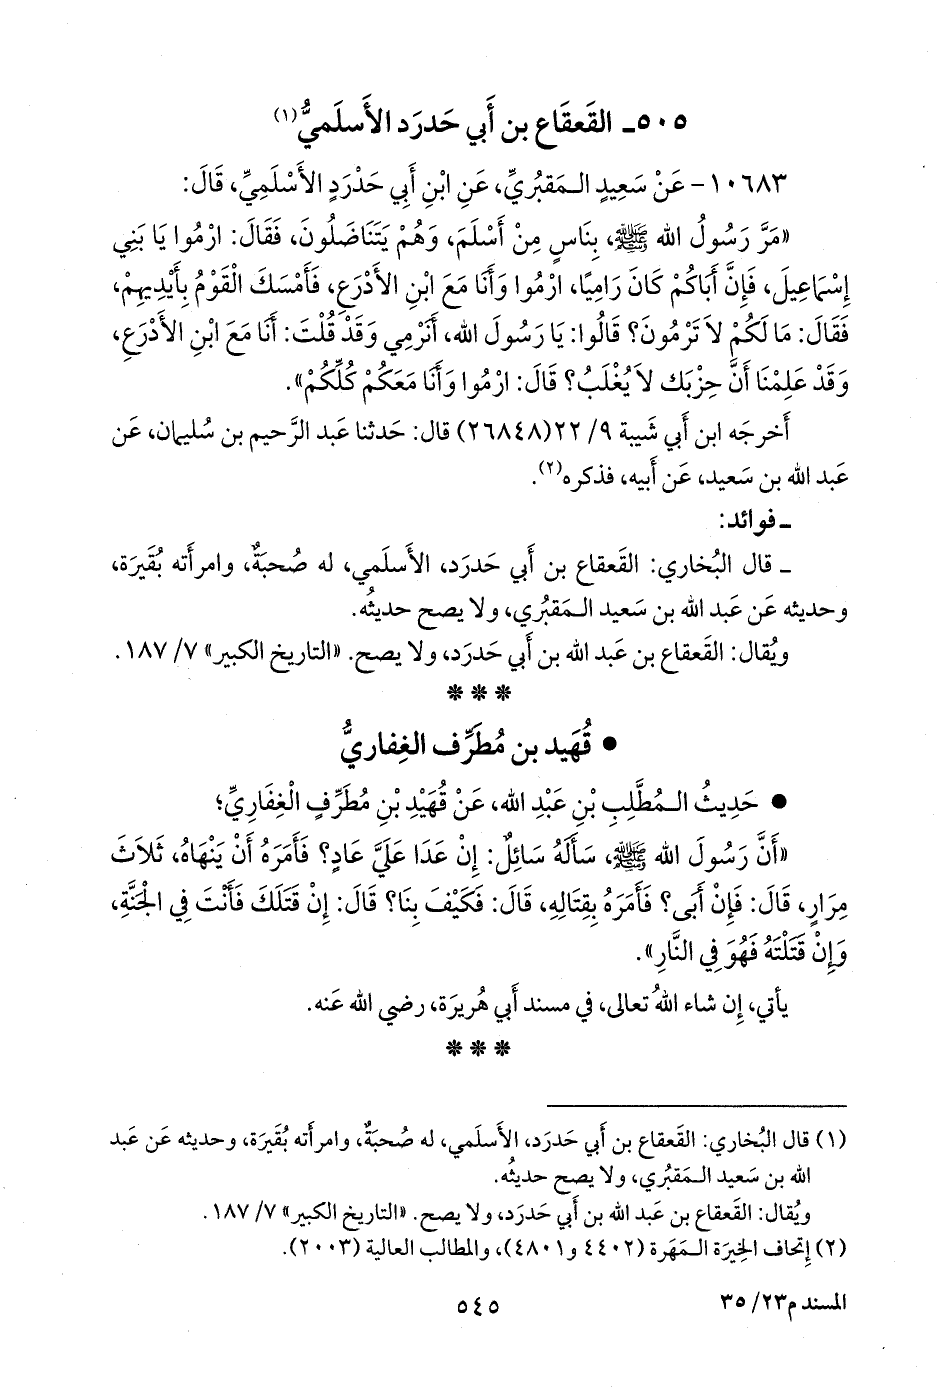 ٥٠٥ـ القَعقَاع بن أَبي حَدرَد الأَسلَميُّ(١)
١٠٦٨٣ - عَنْ سَعِيدٍ الـمَقبُريِّ، عَنِ ابْنِ أَبِي حَدْرَدٍ الأَسْلَمِيِّ، قَالَ:
«مَرَّ رَسُولُ الله ﷺ، بِنَاسٍ مِنْ أَسْلَمَ، وَهُمْ يَتَنَاضَلُونَ، فَقَالَ: ارْمُوا يَا بَنِي
إِسْمَاعِيلَ، فَإِنَّ أَبَاكُمْ كَانَ رَامِيًا، ارْمُوا وَأَنَا مَعَ ابْنِ الأَدْرَعِ، فَأَمْسَكَ الْقَوْمُ بِأَيْدِيهِمْ،
فَقَالَ: مَا لَكُمْ لاَ تَرْمُونَ؟ قَالُوا: يَا رَسُولَ الله، أَنَرْمِي وَقَدْ قُلْتَ: أَنَا مَعَ ابْنِ الأَدْرَعِ،
وَقَدْ عَلِمْنَا أَنَّ حِزْبَكَ لاَ يُغْلَبُ؟ قَالَ: ارْمُوا وَأَنَا مَعَكُمْ كُلِّكُمْ».
أَخرجَه ابن أَبي شَيبة ٩/ ٢٢(٢٦٨٤٨) قال: حَدثنا عَبد الرَّحيم بن سُليمان، عَن
عَبد الله بن سَعيد، عَن أَبيه، فذكره(٢).
ـ فوائد:
ـ قال البُخاري: القَعقاع بن أَبي حَدرَد، الأَسلَمي، له صُحبَةٌ، وامرأَته بُقَيرَة،
وحديثه عَن عَبد الله بن سَعيد الـمَقبُري، ولا يصح حديثُه.
ويُقال: القَعقاع بن عَبد الله بن أَبي حَدرَد، ولا يصح. «التاريخ الكبير» ٧/ ١٨٧.
* * *
• قُهَيد بن مُطَرِّف الغِفاريُّ
• حَدِيثُ الـمُطَّلِبِ بْنِ عَبْدِ الله، عَنْ قُهَيْدِ بْنِ مُطَرِّفٍ الْغِفَارِيِّ؛
«أَنَّ رَسُولَ الله ﷺ، سَأَلَهُ سَائِلٌ: إِنْ عَدَا عَلَيَّ عَادٍ؟ فَأَمَرَهُ أَنْ يَنْهَاهُ، ثَلاَثَ
مِرَارٍ، قَالَ: فَإِنْ أَبَى؟ فَأَمَرَهُ بِقِتَالِهِ، قَالَ: فَكَيْفَ بِنَا؟ قَالَ: إِنْ قَتَلَكَ فَأَنْتَ فِي الْجَنَّةِ،
وَإِنْ قَتَلْتَهُ فَهُوَ فِي النَّارِ».
يأتي، إِن شاء اللهُ تعالى، في مسند أَبي هُريرَة، رضي الله عَنه.
* * *
(١) قال البُخاري: القَعقاع بن أَبي حَدرَد، الأَسلَمي، له صُحبَةٌ، وامرأَته بُقَيرَة، وحديثه عَن عَبد
الله بن سَعيد الـمَقبُري، ولا يصح حديثُه.
ويُقال: القَعقاع بن عَبد الله بن أَبي حَدرَد، ولا يصح. «التاريخ الكبير» ٧/ ١٨٧.
(٢) إِتحاف الخِيرَة الـمَهَرة (٤٤٠٢ و٤٨٠١)، والمطالب العالية (٢٠٠٣).
المسند م٢٣/ ٣٥
٥٤٥